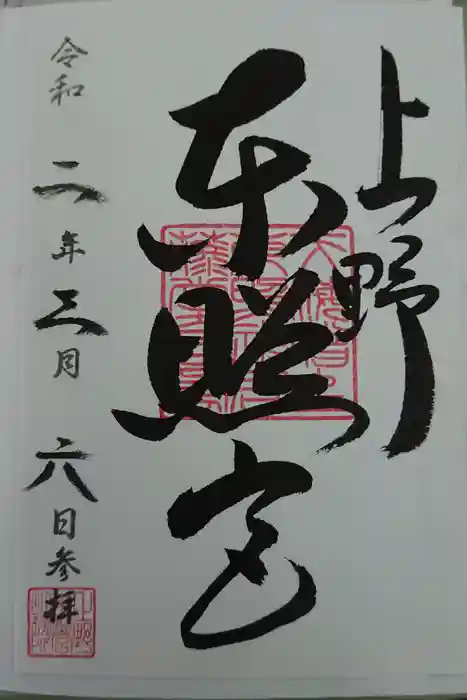 上野
東照宮
令和二年三月六日参拝